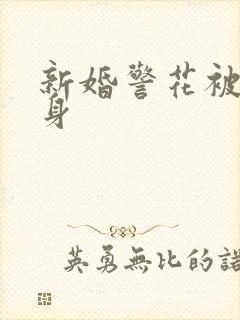 新婚警花被
身
英勇無比的諾